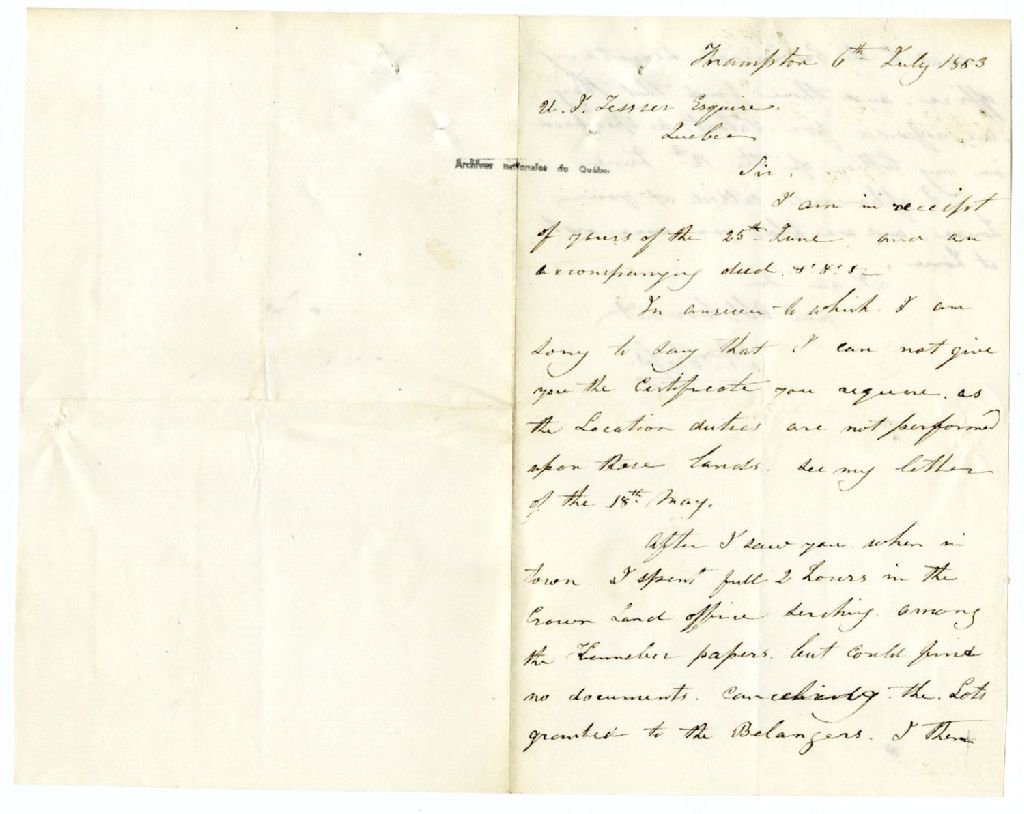 Frampton 6th July 1853
U. J. Tessier Esquire.
Quebec
Archives nationales du Québec
Sir.
I am in receipt
of yours of the 25th June. and an
accompanying deed. &c &c &c
In answer to which. I am
sorry to say that I can not give
you the Certificate you require. as
the Location duties are not performed
upon these lands. see my letter
of the 18th May.
After I saw you when in
town. I spent full 2 hours in the
Crown Land office serching among
the Kennebec papers. but could find
no documents. canceling the Lots
granted to the Belangers. I then